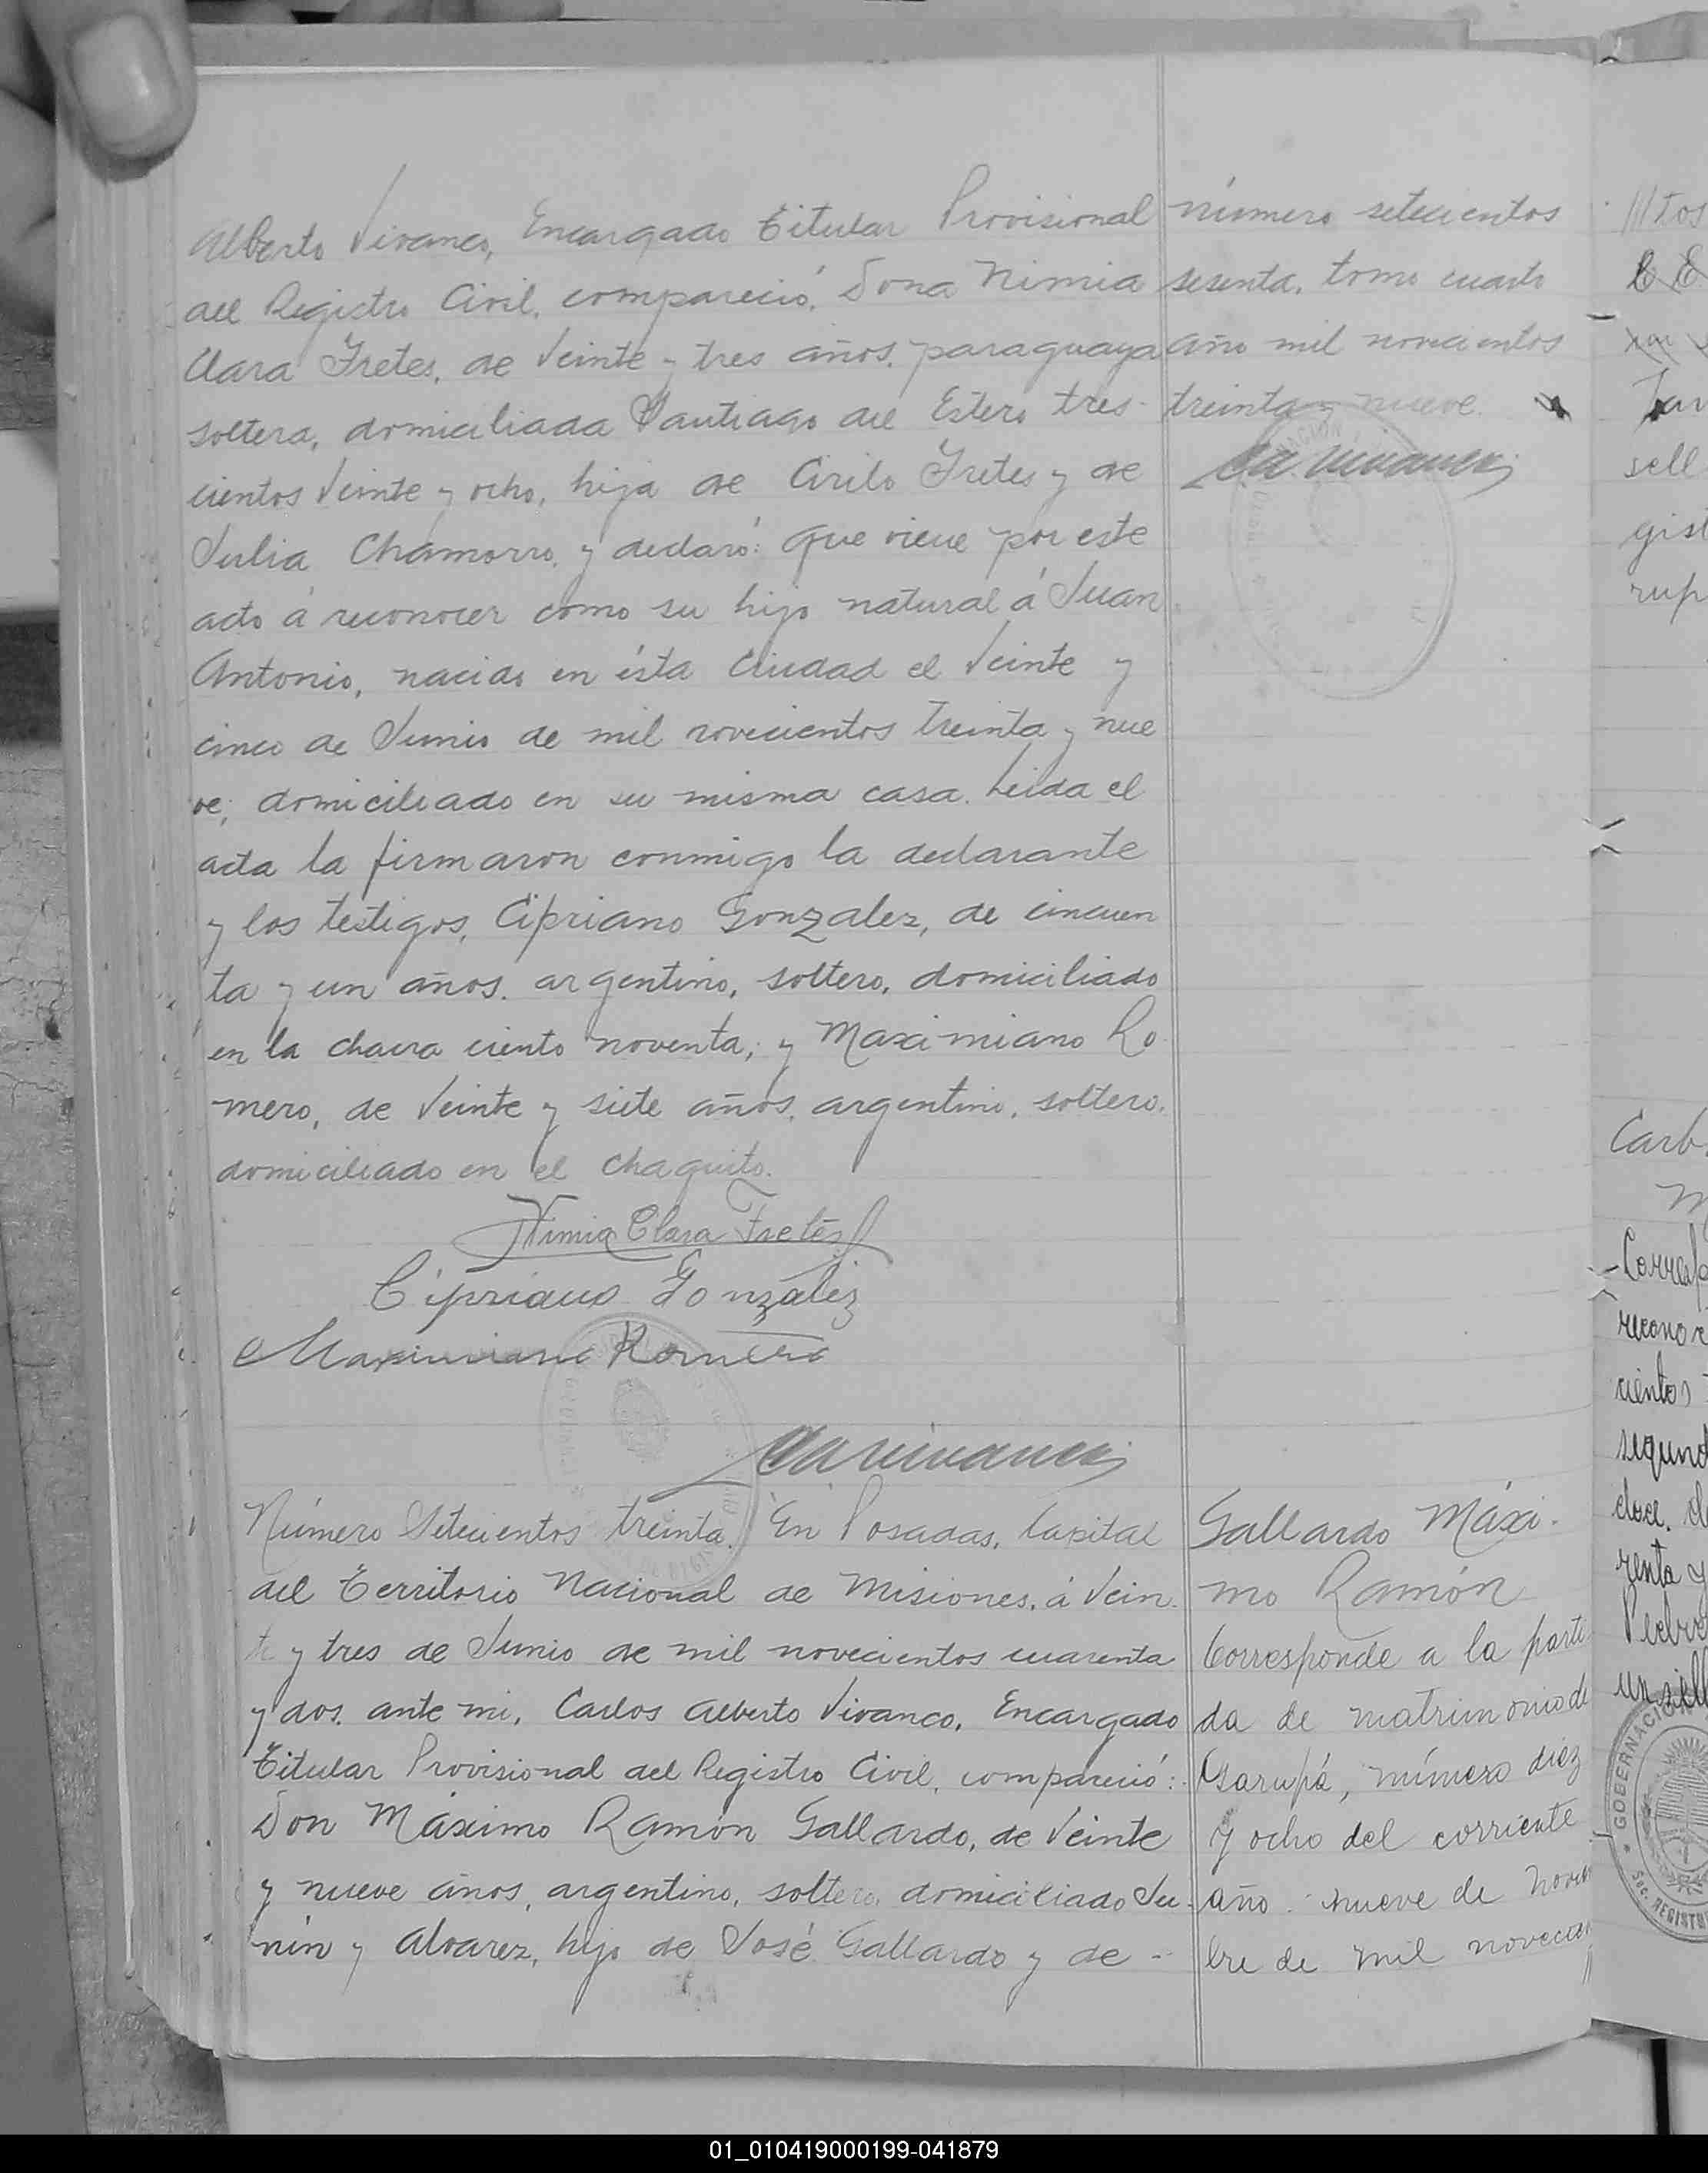 Alberto Vivanco, Encargado Titular Provisional
del Registro Civil, compareció: Doña Nimia
Clara Fretes, de veinte y tres años, paraguaya
soltera, domiciliada Santiago del Estero tres-
cientos veinte y ocho, hija de Cirilo Fretes y de
Julia Chamorro, y declaró: que viene por este
acto á reconocer como su hijo natural á Juan
Antonio, nacido en ésta Ciudad el veinte y
cinco de Junio de mil novecientos treinta y nue
ve; domiciliado en su misma casa. Leida el
acta la firmaron conmigo la declarante
y los testigos, Cipriano Gonzalez, de cincuen
ta y un años, argentino, soltero, domiciliado
en la chacra ciento noventa; y Maximiano Ro
mero, de veinte y siete años, argentino, soltero,
domiciliado en el chaquito.
Nimia Clara Fretes
Cipriano Gonzalez
Maximiano Romero
número setecientos
sesenta, tomo cuarto
año mil novecientos
treinta y nueve.
Número Setecientos treinta. En Posadas, Capital
del Territorio Nacional de Misiones, á vein-
te y tres de Junio de mil novecientos cuarenta
y dos, ante mi, Carlos Alberto Vivanco, Encargado
Titular Provisional del Registro Civil, compareció:
Don Máximo Ramón Gallardo, de veinte
y nueve años, argentino, soltero, domiciliado Ju-
nín y Alvarez, hijo de José Gallardo y de -
Gallardo Máxi-
mo Ramón
Corresponde a la parti
da de matrimonio de
Garupá, número diez
y ocho del corriente
año. nueve de Noviem
bre de mil novecien
sell
gist
rup
Carb
Corresp
reconoc
cientos
segund
doce. d
renta y
Pedro
un sell
GOBERNACION
SEC. REGISTR
01_010419000199-041879